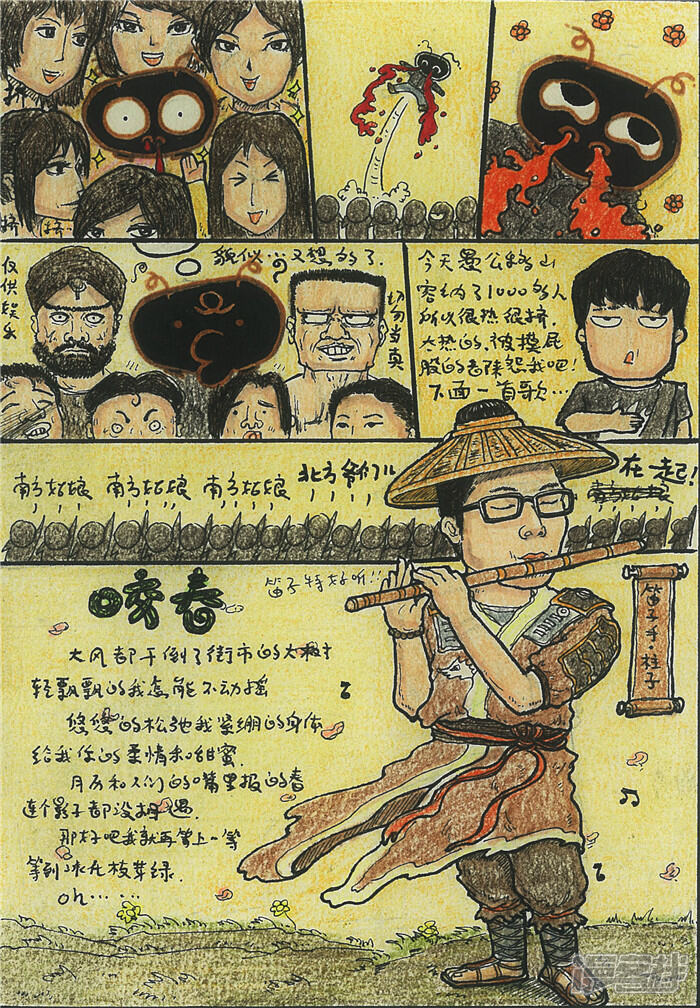 挤
挤
仅供娱乐
貌似…又想多了.
切勿当真
今天愚公移山
容纳了1000多人
所以很热很挤.
大热的,被摸屁
股的老陈怨我吧!
下面一首歌…
南方姑娘 南方姑娘 南方姑娘 北方爷们儿
在一起!
笛子特好听!!
咬春
笛子手·柱子
大风都干倒了街市的大树
轻飘飘的我怎能不动摇
悠缓的松弛我紧绷的身体
给我你的柔情和甜蜜.
月历和人们的嘴里报的春
连个影子都没拥遇.
那好吧我就再等上一等
等到冰化枝芽绿.
oh……
漫客栈